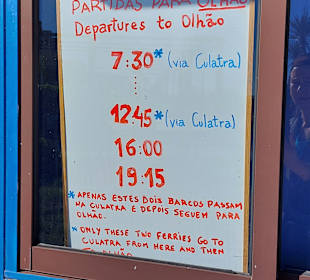 PARTIDAS PARA OLHÃO
Departures to Olhão
7:30* (via Culatra)
12:45* (via Culatra)
16:00
19:15
* APENAS ESTES DOIS BARCOS PASSAM
NA CULATRA E DEPOIS SEGUEM PARA
OLHÃO.
* ONLY THESE TWO FERRIES GO TO
CULATRA FROM HERE AND THEN
OLHÃO